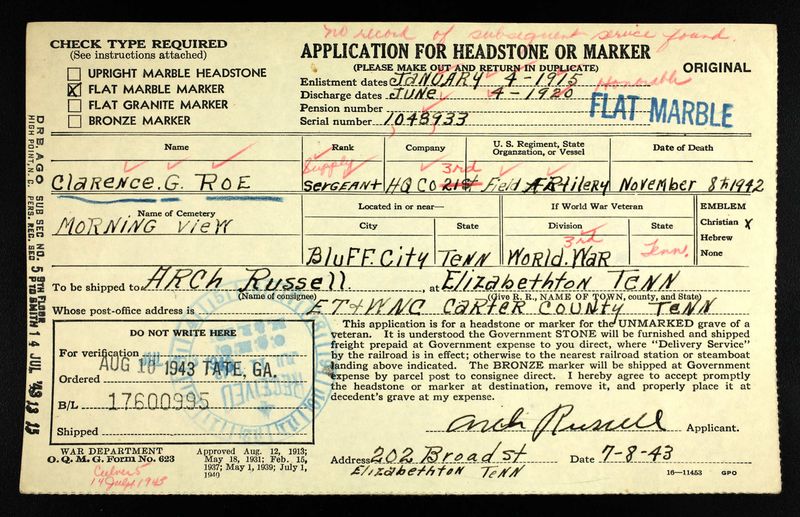 No record of subsequent service found.
CHECK TYPE REQUIRED
(See instructions attached)
UPRIGHT MARBLE HEADSTONE
X FLAT MARBLE MARKER
FLAT GRANITE MARKER
BRONZE MARKER
APPLICATION FOR HEADSTONE OR MARKER
(PLEASE MAKE OUT AND RETURN IN DUPLICATE)
ORIGINAL
Enlistment dates JANUARY 4-1915
Discharge dates JUNE 4-1920 Honorable
Pension number
Serial number 1043933
FLAT MARBLE
Name Rank Company U. S. Regiment, State Organzation, or Vessel Date of Death
Supply 3rd
Clarence. G. ROE SERGEANT HQ CO 21st Field ARtilery November 8th 1942
Name of Cemetery Located in or near— If World War Veteran EMBLEM
MORNING View City State Division State
Christian X
Hebrew
None
3rd Tenn.
Bluff. City TENN World. War
To be shipped to ARCh Russell, at Elizabethton TENN
(Name of consignee) (Give R. R., NAME OF TOWN, county, and State)
Whose post-office address is ET+WNC CARTER COUNTY TENN
DO NOT WRITE HERE
For verification
Ordered AUG 10 1943 TATE, GA.
B/L 17600995
Shipped
RECEIVED
This application is for a headstone or marker for the UNMARKED grave of a
veteran. It is understood the Government STONE will be furnished and shipped
freight prepaid at Government expense to you direct, where "Delivery Service"
by the railroad is in effect; otherwise to the nearest railroad station or steamboat
landing above indicated. The BRONZE marker will be shipped at Government
expense by parcel post to consignee direct. I hereby agree to accept promptly
the headstone or marker at destination, remove it, and properly place it at
decedent's grave at my expense.
Arch Russell Applicant.
Address 202 Broad st Date 7-8-43
Elizabethton TENN
WAR DEPARTMENT
O. Q. M. G. Form No. 623
Approved Aug. 12, 1913;
May 18, 1931; Feb. 15,
1937; May 1, 1939; July 1,
1940
14 July 1943
16—11453 GPO
DR&AGO SUB SEC NO. 5 5TH FLOOR
HIGH POINT, N. C. PERS. REC. SEC PTD SMITH 14 JUL '43 13 13